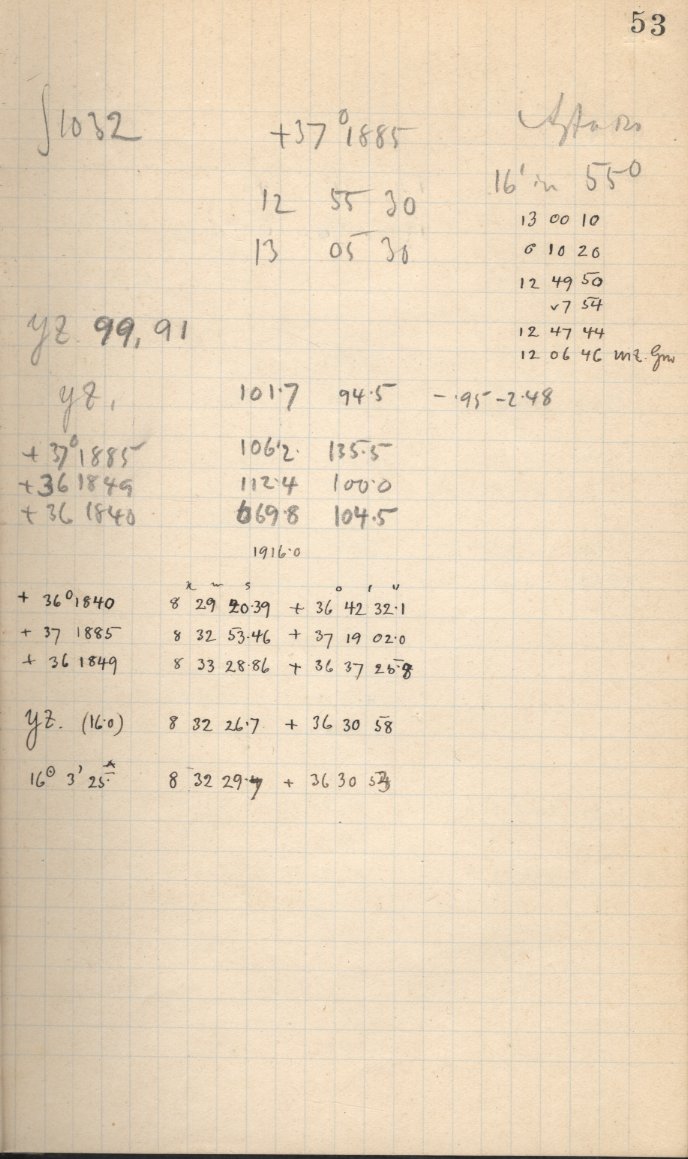 53
∫1032 +37°1885
16' in 55°
12 55 30
13 05 30
13 00 10
0 10 20
12 49 50
7 54
12 47 44
12 06 46 mz. Grw
YZ 99, 91
YZ, 101.7 94.5 -.95 -2.48
+37°1885 106.2 135.5
+36 1849 112.4 100.0
+36 1840 069.8 104.5
1916.0
h m s o ' "
+ 36°1840 8 29 20.39 + 36 42 32.1
+ 37 1885 8 32 53.46 + 37 19 02.0
+ 36 1849 8 33 28.86 + 36 37 25.8
YZ. (16.0) 8 32 26.7 + 36 30 58
16° 3' 25 8 32 29 + 36 30